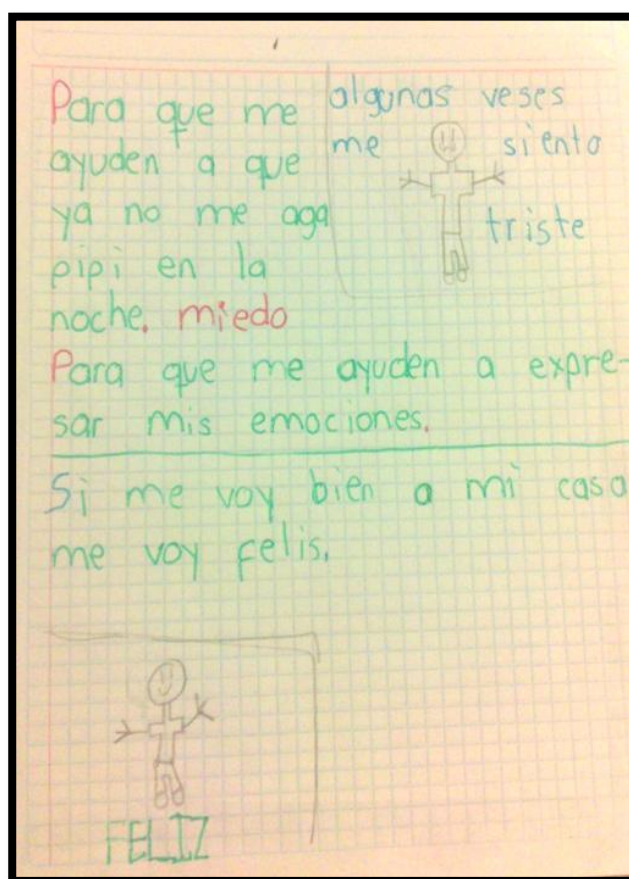 Para que me
ayuden a que
ya no me aga
pipi en la
noche. miedo
algunas veses
me siento
triste
Para que me ayuden a expre-
sar mis emociones.
Si me voy bien a mi casa
me voy felis.
FELIZ